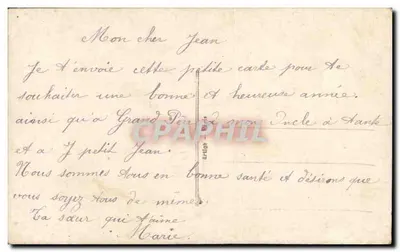 Mon cher Jean.
Je t'envoie cette petite carte pour te
souhaiter une bonne et heureuse année.
ainsi qu'a Grand oncle à tante
et a petit Jean.
Nous sommes tous en bonne santé et désirons que
vous soyez tous de même.
Ta sœur qui t'aime
Marie.
CPAPHIL